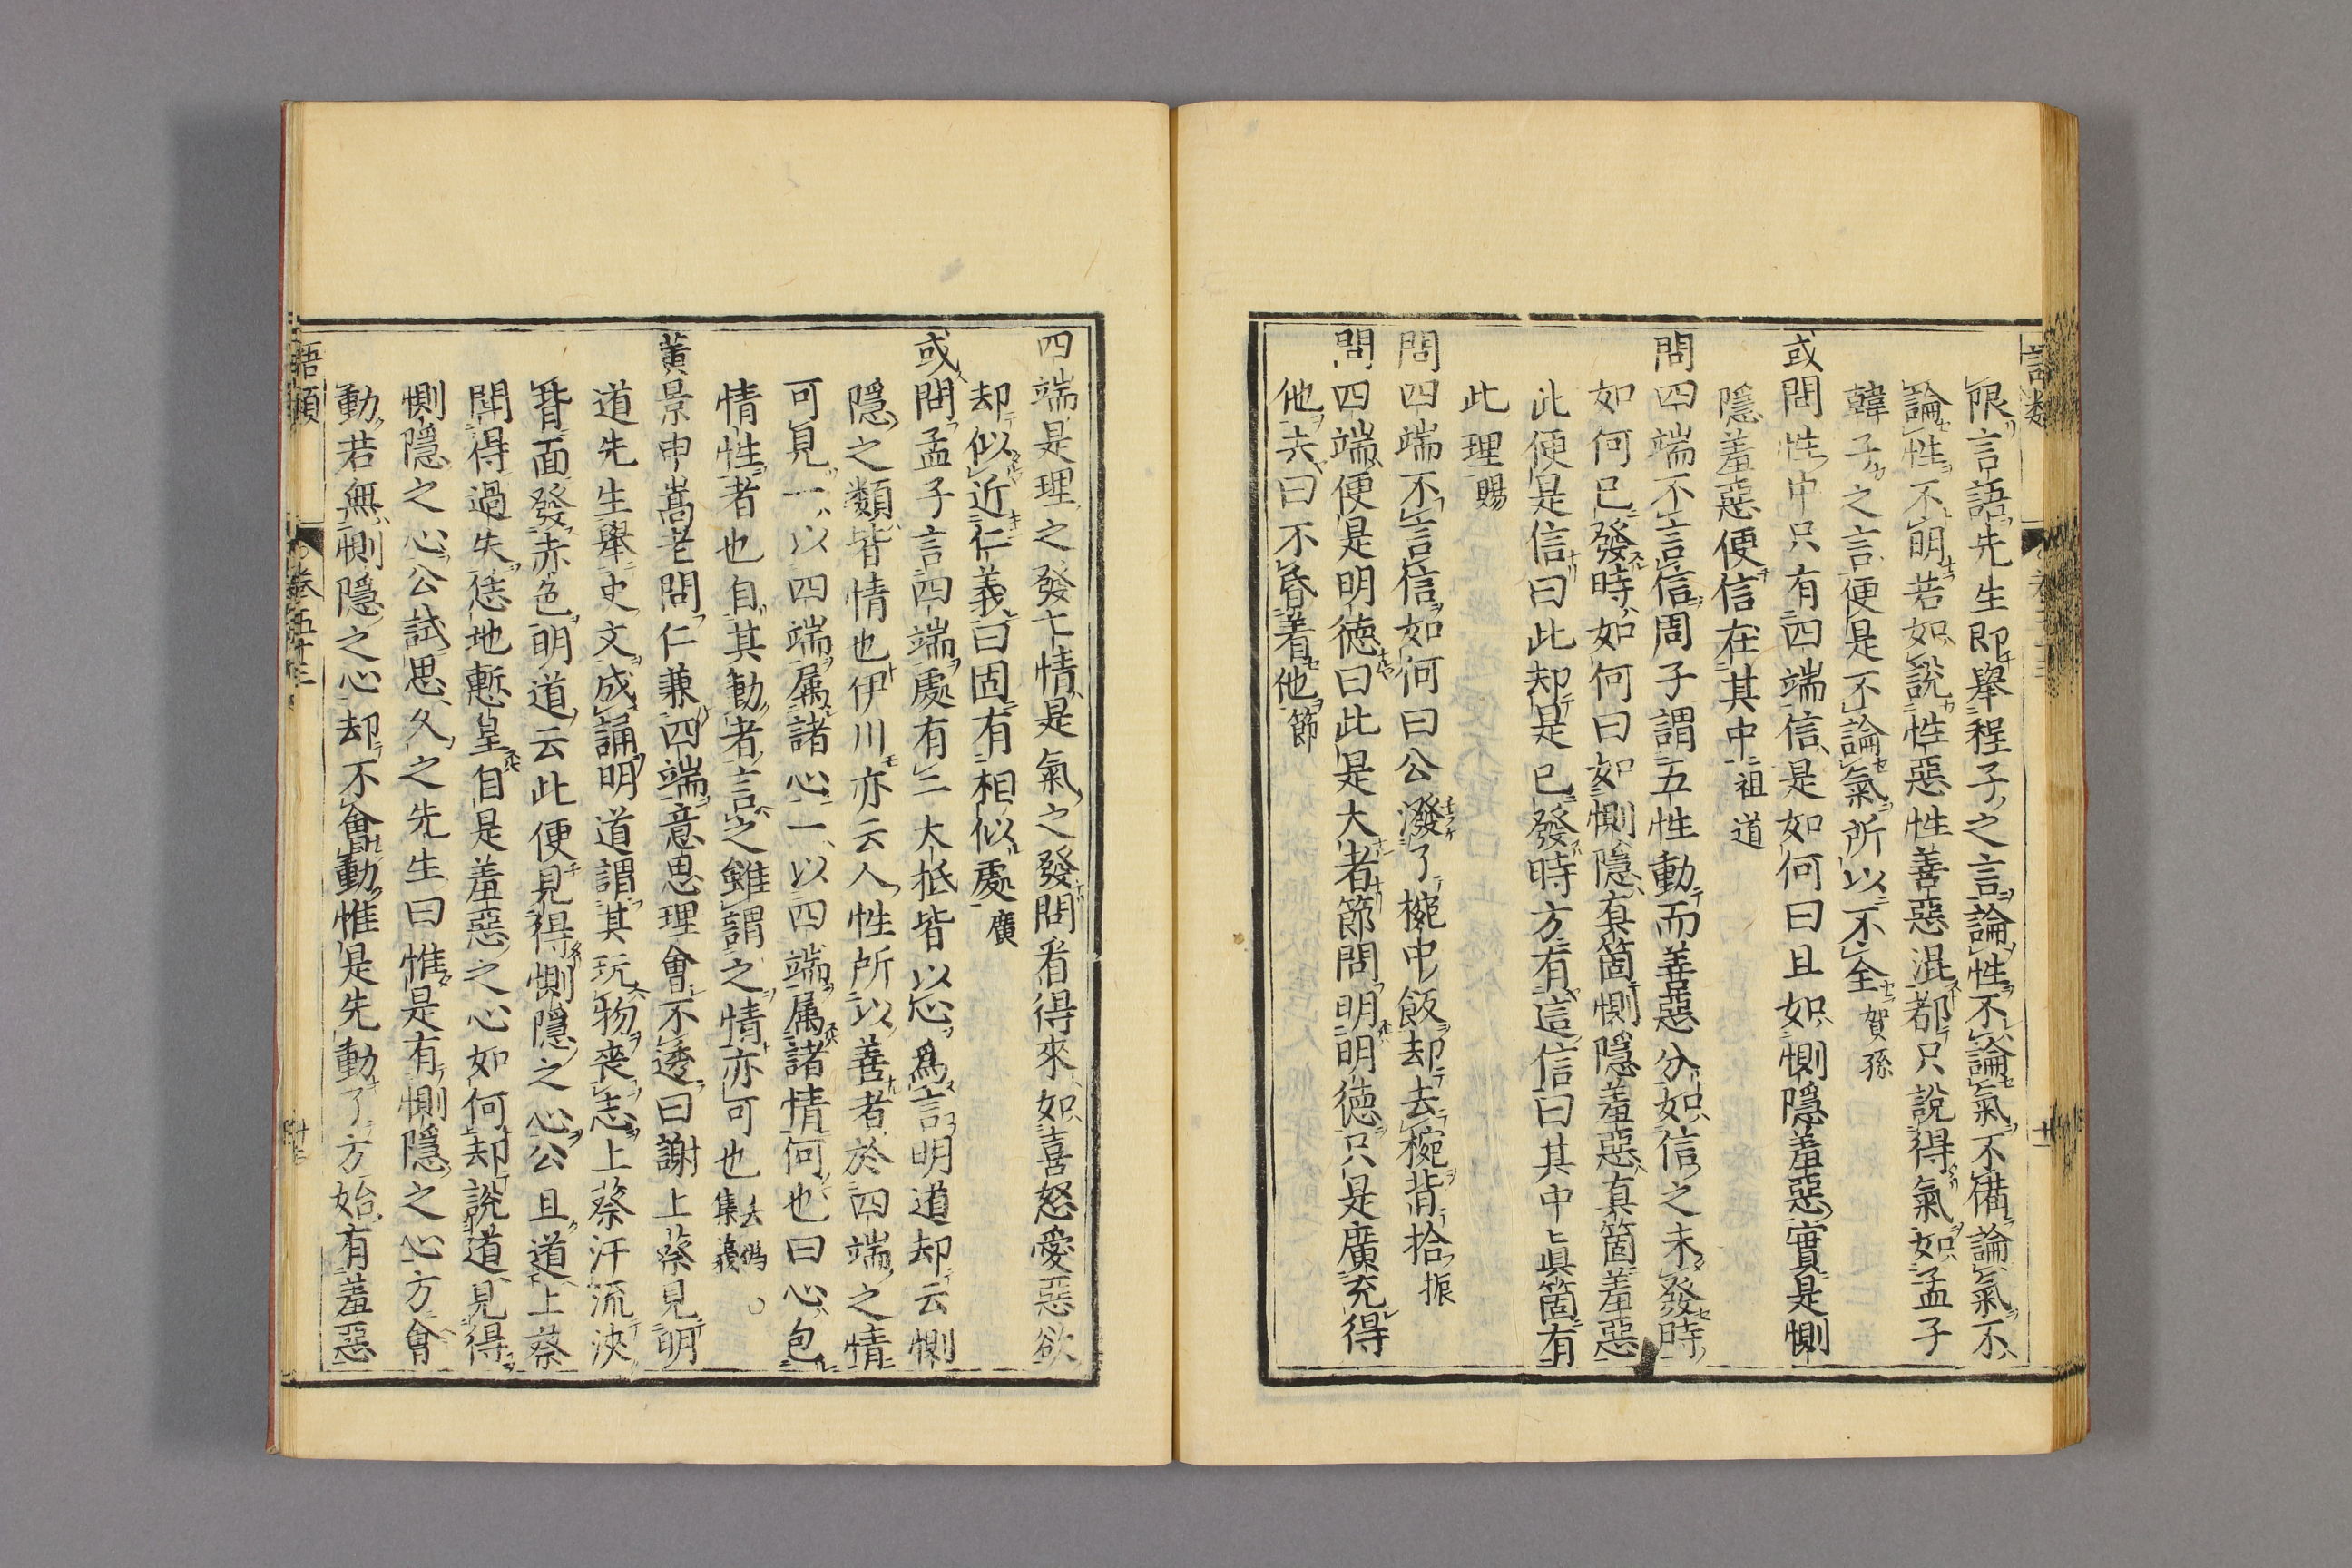 限言語先生即舉程子之言論性不論氣不備論氣不
論性不明若如說性惡性善惡混都只說得氣如孟子
韓子之言便是不論氣所以不全賀孫
或問性中只有四端信是如何曰且如惻隱羞惡實是惻
隱羞惡便信在其中祖道
問四端不言信周子謂五性動而善惡分如信之未發時
如何已發時如何曰如惻隱真箇惻隱羞惡真箇羞惡
此便是信曰此却是已發時方有這信曰其中真箇有
此理賜
問四端不言信如何曰公潑了椀中飯却去椀背拾振
問四端便是明德曰此是大者節問明明德只是廣充得
他去曰不昏着他節
四端是理之發七情是氣之發問看得來如喜怒愛惡欲
却似近仁義曰固有相似處廣
或問孟子言四端處有二大抵皆以心爲言明道却云惻
隱之類皆情也伊川亦云人性所以善者於四端之情
可見一以四端屬諸心一以四端屬諸情何也曰心包
情性者也自其動者言之雖謂之情亦可也去偽集義
黃景申嵩老問仁兼四端意思理會不透曰謝上蔡見明
道先生舉史文成誦明道謂其玩物喪志上蔡汗流浹
背面發赤色明道云此便見得惻隱之心公且道上蔡
聞得過失恁地慙皇自是羞惡之心如何却說道見得
惻隱之心公試思久之先生曰惟是有惻隱之心方會
動若無惻隱之心却不會動惟是先動了方始有羞惡
語類
卷五十三